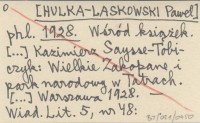 [HULKA-LASKOWSKI Paweł]
phl. 1928. Wśród książek.
[...] Kazimierz Saysse-Tobi-
czyk: Wielkie Zakopane i
park narodowy w Tatrach.
[...] Warszawa 1928. -
Wiad. Lit. 5, nr 48: